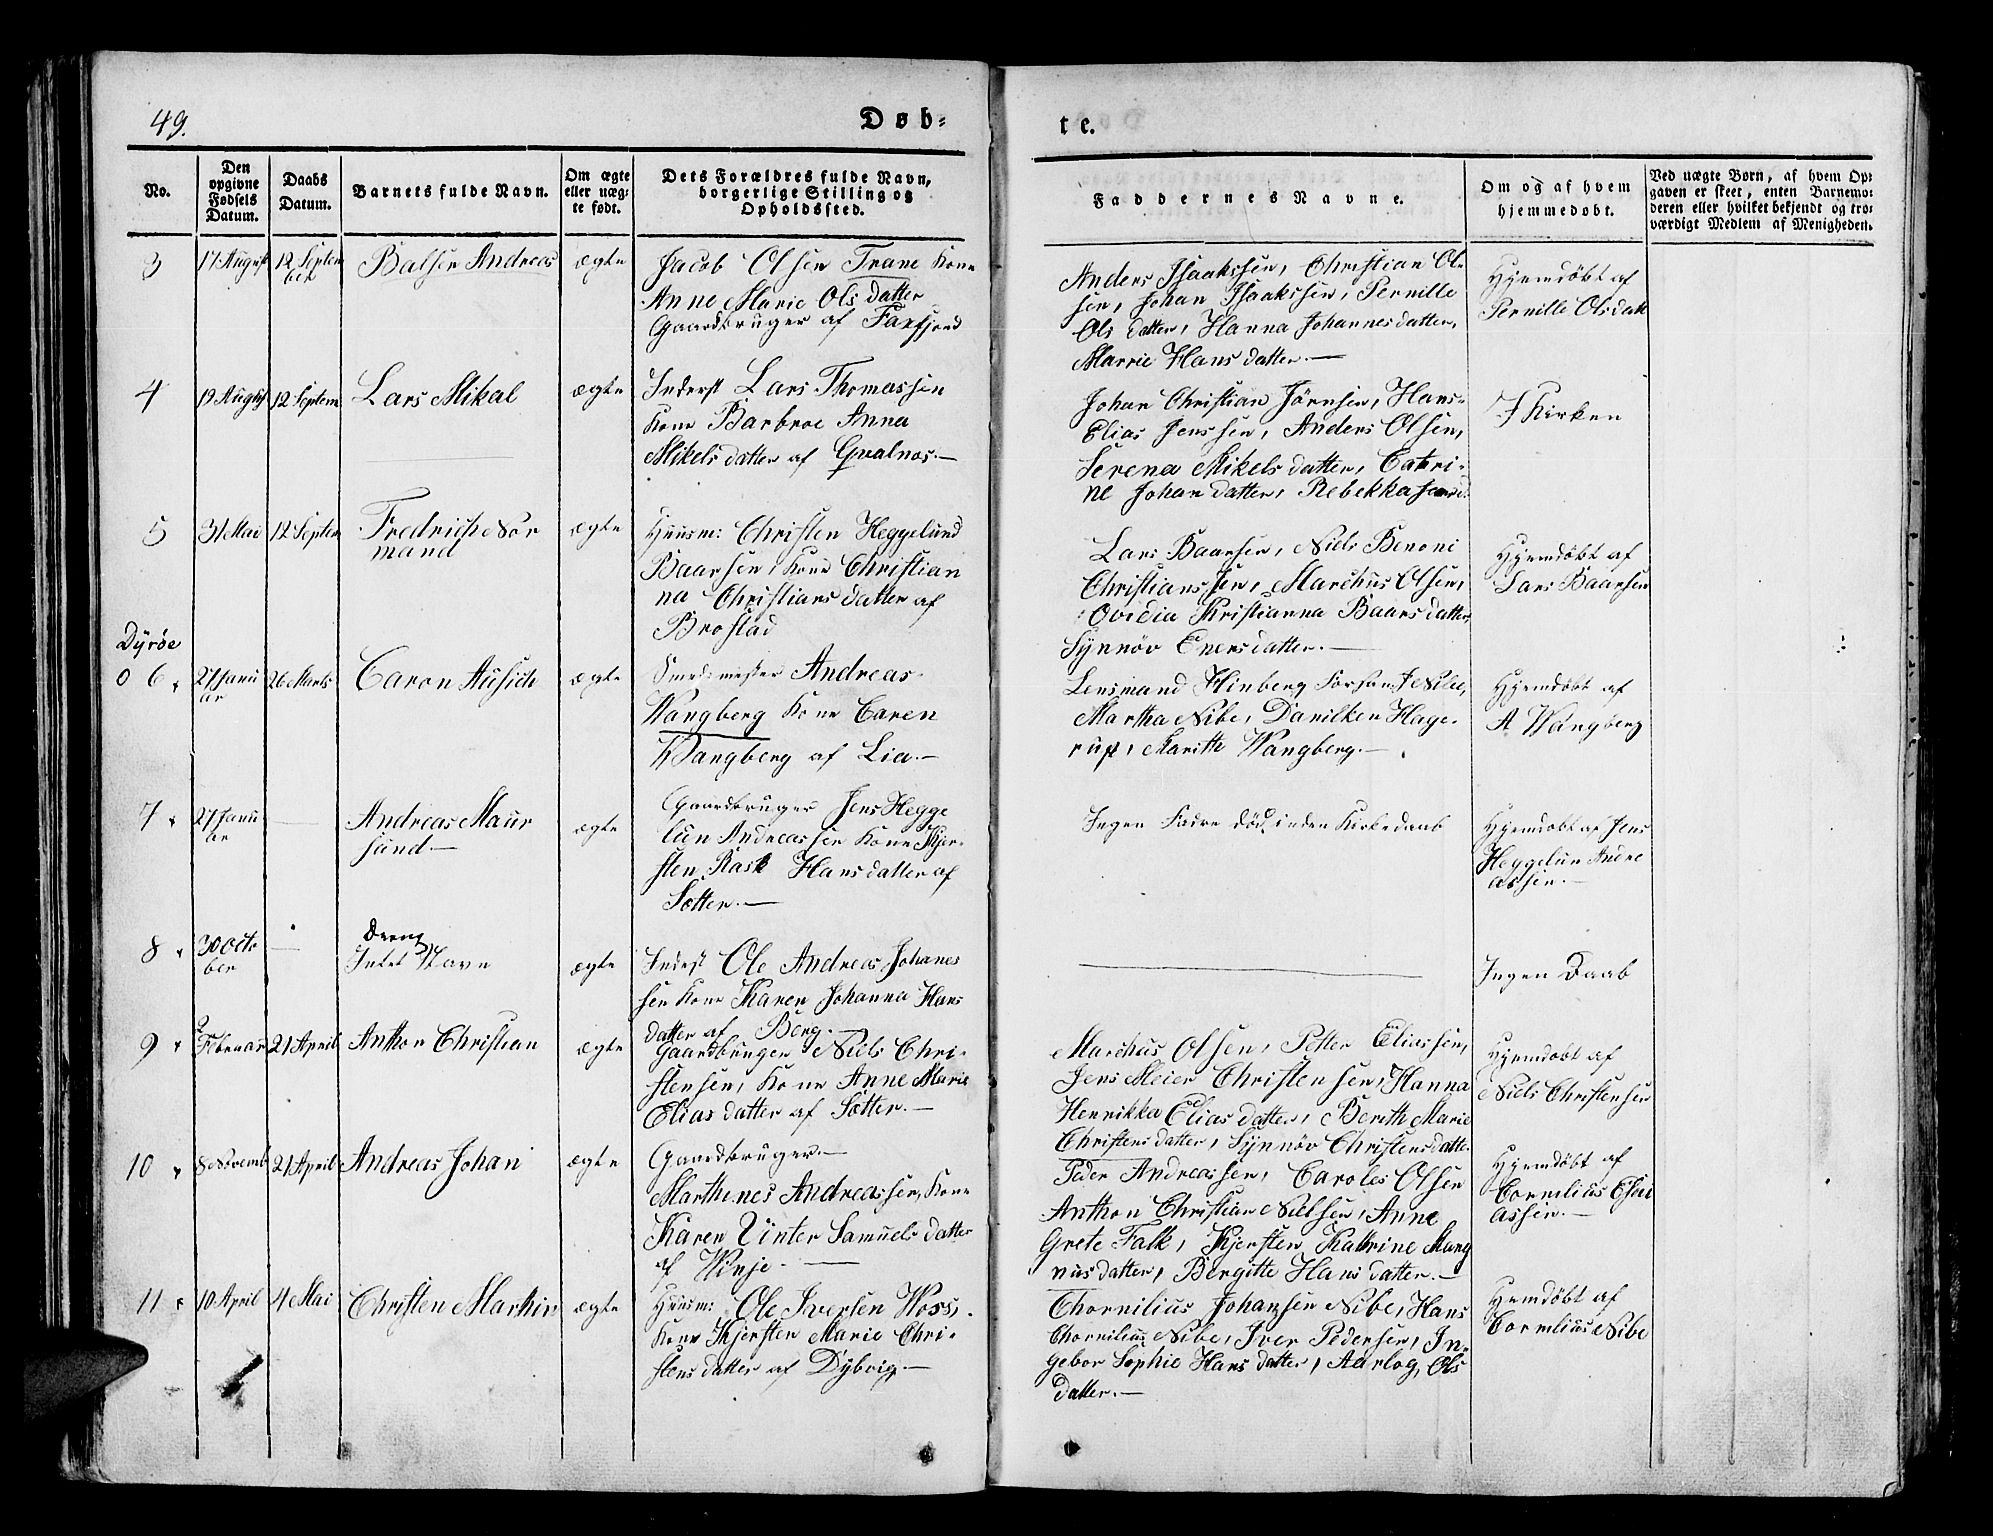 49.
Døb-
te.
No.
Den opgivne Fødsels Datum.
Daabs Datum.
Barnets fulde Navn.
Om ægte eller uægte født.
Dets Forældres fulde Navn, borgerlige Stilling og Opholdssted.
Faddernes Navne.
Om og af hvem hjemmedøbt.
Ved uægte Børn, af hvem Opgaven er skeet, enten Barnemoderen eller hvilket bekjendt og troværdigt Medlem af Menigheden.
3 17 August 12 Septem
ber
Balser Andreas
ægte
Jacob Olsen Trane Kone
Anne Marie Ols datter
Gaardbruger af Faxfjord
Anders Isaakssen, Christian Ol-
sen, Johan Isaakssen, Pernille
Ols datter, Hanna Johannesdatter,
Marrie Hans datter.—
Hjemdøbt af
Pernille Olsdatt
4 19 Augst 12 Septem
Lars Mikal
ægte
Inderst Lars Thomassen
Kone Barbroe Anna
Mikels datter af Qvalnes.—
Johan Christian Jørnsen, Hans-
Elias Jenssen, Anders Olsen,
Serena Mikels datter, Cathri-
ne Johan datter, Rebekka
I Kirken
5 31 Mai 12 Septem
Fredrich Nor
mand
ægte
Huusm: Christen Heggelund
Baarsen, Kone Christian
na Christians datter af
Brostad
Lars Baarsen, Niels Benoni
Christians sen, Marchus Olsen,
Ovidia Kristianna Baars datter,
Synnøv Eners datter.—
Hjemdøbt af
Lars Baarsen
Dyrøe
0 6 27 Janu
ar
26 Marts
Caron Ausich
ægte
Smedmester Andreas
Wangberg Kone Caren
Wangberg af Lia.—
Lensmand Hinberg
Martha Nibe, Danilken Hage-
rup, Maritte Wangberg.—
Hjemdøbt af
A Wangberg
7 27 Janu
ar —
Andreas Maur
sund.—
ægte
Gaardbruger Jens Hegge
lun Andreassen Kone Kjer-
sten Rask Hans datter af
Sætter.—
Ingen Fadre død inden Kirkedaab
Hjemdøbt af Jens
Heggelun Andre
assen.—
8 30 Octo
ber —
Dreng
Intet Navn
ægte
Inderst Ole Andreas Johanes
sen Kone Karen Johanna Hans
datter af Berg.—
Ingen Daab
9 2
Februar 21 April
Anthon Christian
ægte
Gaardbruger Niels Chri-
stensen, Kone Anne Marie
Elias datter af Sætter.—
Marchus Olsen, Petter Eliassen,
Jens Meier Christensen, Hanna
Henrikka Elias datter, Berith Marie
Christens datter, Synnøv Christens datter
Hjemdøbt af
Niels Christensen
10 8 Novemb 21 April
Andreas Johan
ægte
Gaardbruger.—
Marthenes Andreassen, Kone
Karen Vinter Samuels datter
af Winje.—
Peder Andreassen, Caroles Olsen
Anthon Christian Nielsen, Anne
Grete Falk, Kjersten Kathrine Mang
nus datter, Birgitte Hans datter.—
Hjemdøbt af
Cornilius Elia
assen.—
11 10 April 4 Mai
Christen Martin
ægte
Huusm: Ole Iversen Woss,
Kone Kjersten Marie Chri-
stens datter af Dybvig.—
Chornilius Johansen Nibe, Hans
Chornilius Nibe, Iver Pedersen, In-
gebor Sophie Hans datter, Aarlog, Ols
datter.—
Hjemdøbt af
Cornilius Nibe